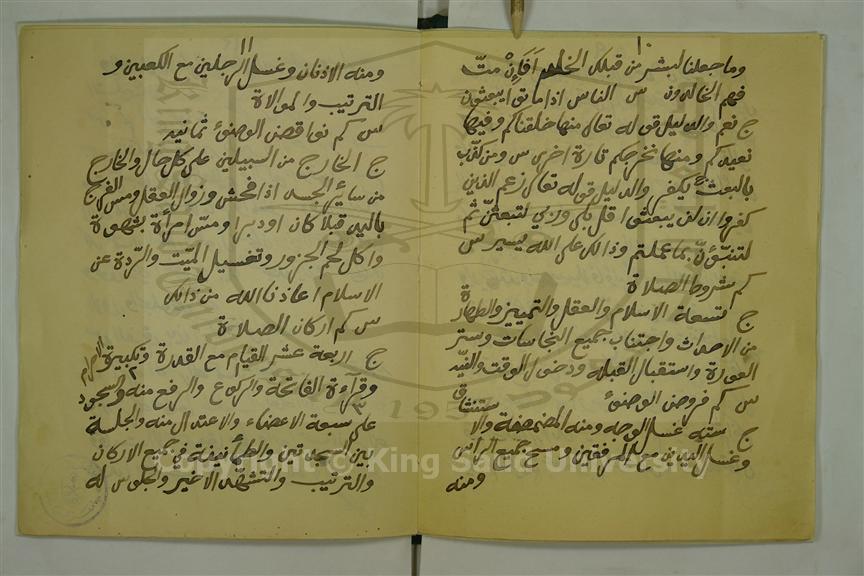 وما جعلنا لبشر من قبلك الخلد أفإن مت
فهم الخالدون س الناس اذا ماتوا يبعثون
ج نعم والدليل قوله تعالى منها خلقناكم وفيها
نعيدكم ومنها نخرجكم تارة اخرى س ومن كذب
بالبعث يكفر والدليل قوله تعالى زعم الذين
كفروا ان لن يبعثوا قل بلى وربي لتبعثن ثم
لتنبؤن بما عملتم وذالك على الله يسير س
كم شروط الصلاة
ج تسعة الاسلام والعقل والتمييز والطهارة
من الاحداث واجتناب جميع النجاسات وستر
العورة واستقبال القبله ودخول الوقت والنيه
س كم فروض الوضوئ
ج سته غسل الوجه ومنه المضمضة والاستنشاق
وغسل اليدين مع المرفقين ومسح جميع الراس
ومنه
ومنه الاذنان وغسل الرجلين مع الكعبين و
الترتيب والموالاة
س كم نواقض الوضوئ ثمانيه
ج الخارج من السبيلين على كل حال والخارج
من سائر الجسد اذا فحش وزوال العقل ومس الفرج
باليد قبلا كان او دبرا ومس امرأة بشهوة
واكل لحم الجزور وتغسيل الميت والردة عن
الاسلام اعاذنا الله من ذالك
س كم اركان الصلاة
ج اربعة عشر القيام مع القدرة وتكبيرة الاحرام
وقرآءة الفاتحة والركوع والرفع منه والسجود
على سبعة الاعضاء والاعتدال منه والجلسة
بين السجدتين والطمأنينة في جميع الاركان
والترتيب والتشهد الاخير والجلوس له
Copyright © King Saud University